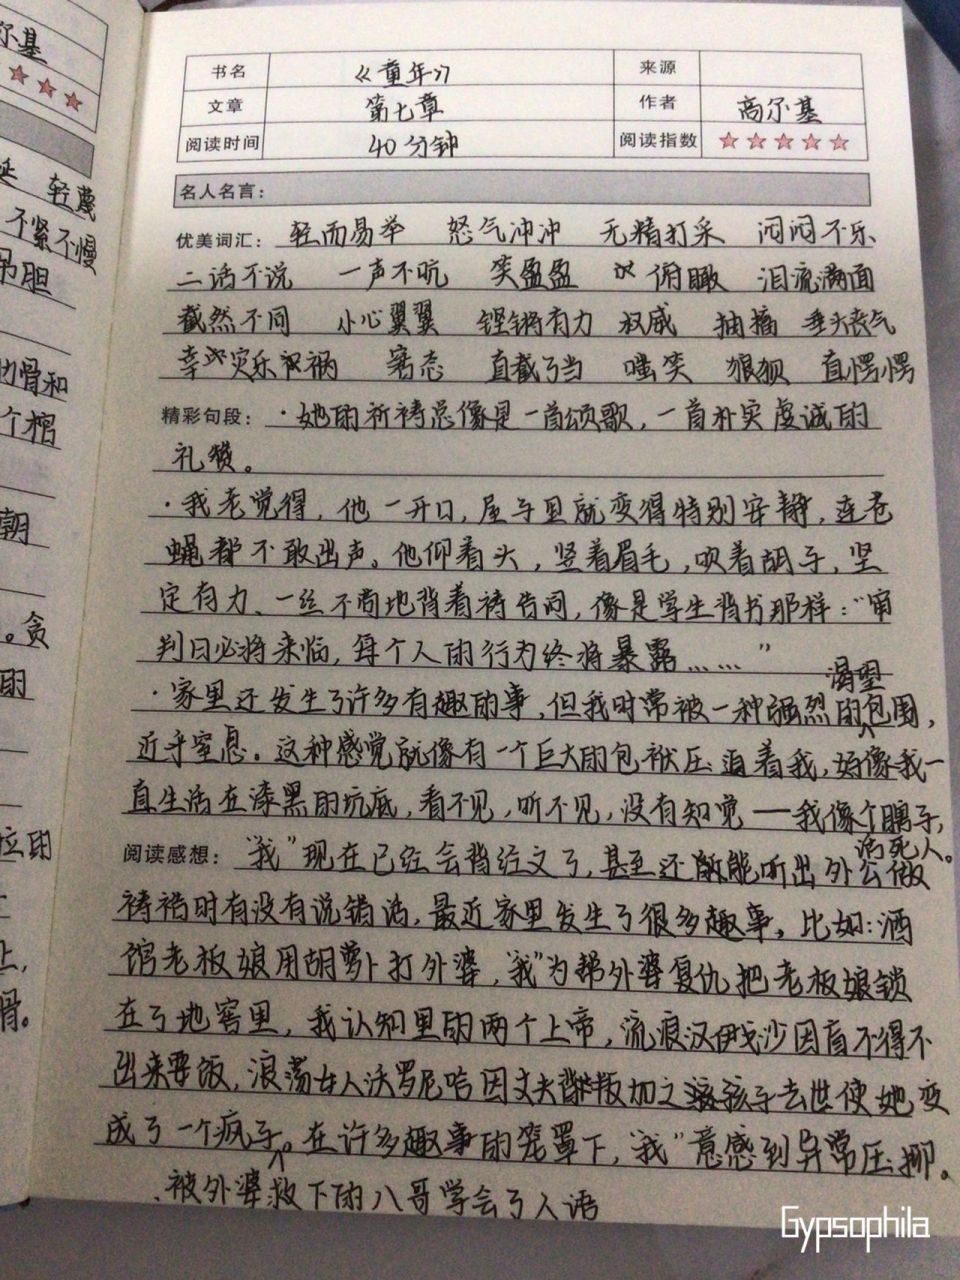 尔基
☆☆☆
轻蔑
不紧不慢
吊胆
骨和
个棺
朝
。贪
的
位的
上,
骨。
书名 《童年》 来源
文章 第七章 作者 高尔基
阅读时间 40分钟 阅读指数 ☆☆☆☆☆
名人名言:
优美词汇: 轻而易举 怒气冲冲 无精打采 闷闷不乐
二话不说 一声不吭 笑盈盈 俯瞰 泪流满面
截然不同 小心翼翼 铿锵有力 权威 抽搐 垂头丧气
幸灾乐祸 窘态 直截了当 嗤笑 狼狈 直愣愣
精彩句段: ·她的祈祷总像是一首颂歌,一首朴实虔诚的
礼赞。
·我老觉得,他一开口,屋子里就变得特别安静,连苍
蝇都不敢出声。他仰着头,竖着眉毛,吹着胡子,坚
定有力、一丝不苟地背着祷告问,像是学生背书那样:“审
判日必将来临,每个人的行为终将暴露……”
·家里还发生了许多有趣的事,但我时常被一种强烈的渴望包围,
近乎窒息。这种感觉就像有一个巨大的包袱压迫着我,好像我一
直生活在漆黑的坑底,看不见,听不见,没有知觉——我像个瞎子,
活死人。
阅读感想: “我”现在已经会背经文了,甚至还能听出外公做
祷祷时有没有说错话,最近家里发生了很多趣事。比如:酒
馆老板娘用胡萝卜打外婆,“我”为帮外婆复仇把老板娘锁
在了地窖里,我认知里的两个上帝,流浪汉伊戈沙因盲不得不
出来要饭,浪荡女人沃罗尼哈因丈夫背叛加之孩子去世使她变
成了一个疯子。在许多趣事的笼罩下,“我”意感到异常压抑。
、被外婆救下的八哥学会了人语
Gypsophila